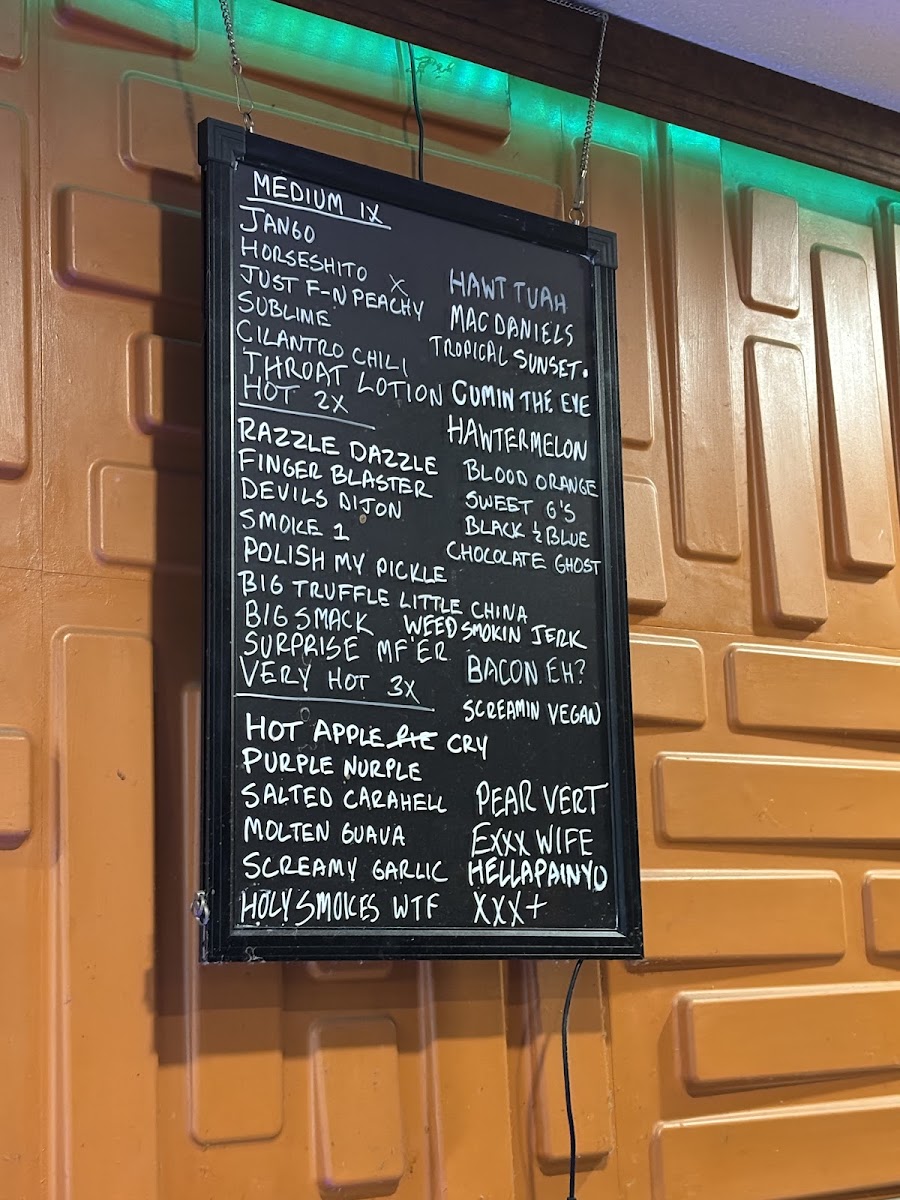 MEDIUM 1X
JANGO
HORSESHITO X
JUST F-N PEACHY
SUBLIME
CILANTRO CHILI
THROAT LOTION
HAWT TUAH
MAC DANIELS
TROPICAL SUNSET.
CUMIN THE EYE
HOT 2X
RAZZLE DAZZLE
FINGER BLASTER
DEVILS DIJON
SMOKE 1
POLISH MY PICKLE
BIG TRUFFLE LITTLE CHINA
BIG SMACK
SURPRISE MF'ER
HAWTERMELON
BLOOD ORANGE
SWEET G'S
BLACK ½ BLUE
CHOCOLATE GHOST
WEED SMOKIN JERK
BACON EH?
SCREAMIN VEGAN
VERY HOT 3X
HOT APPLE PIE CRY
PURPLE NURPLE
SALTED CARAHELL
MOLTEN GUAVA
SCREAMY GARLIC
HOLY SMOKES WTF
PEAR VERT
EXXX WIFE
HELLAPAINYO
XXX+